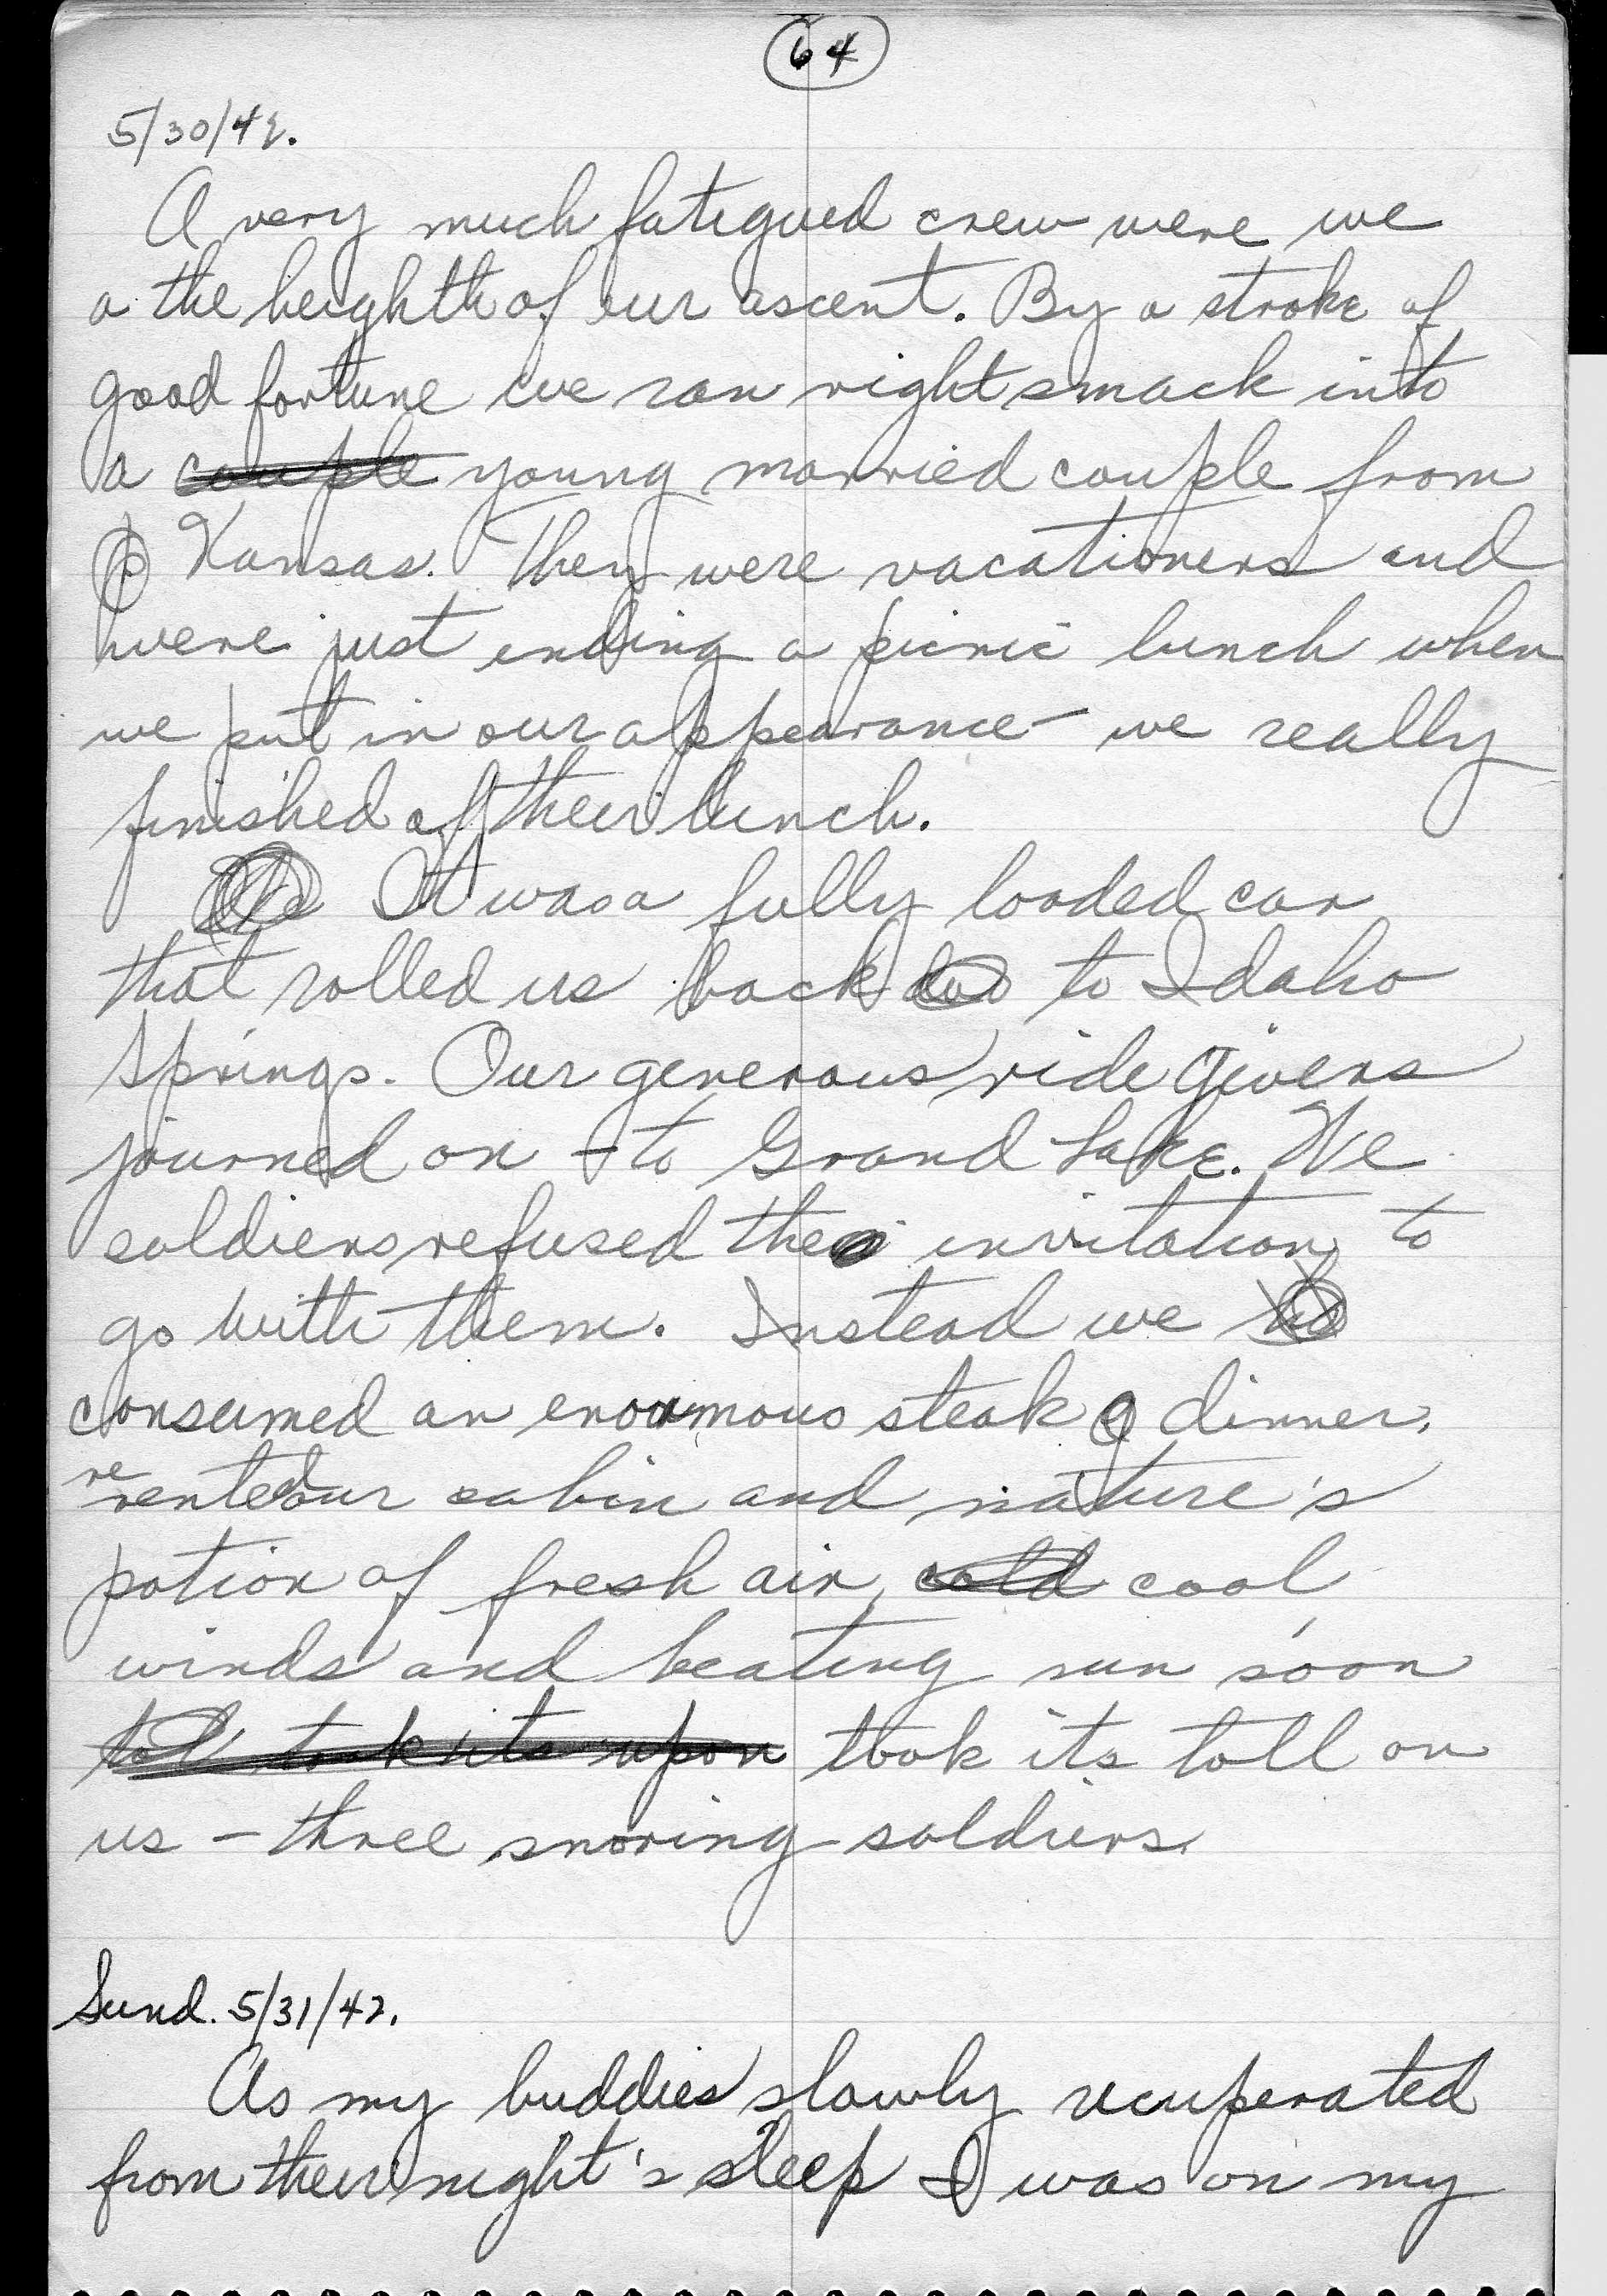 64
5/30/42.
A very much fatigued crew were we
a the heighth of our ascent. By a stroke of
good fortune we ran right smack into
a couple young married couple from
Kansas. They were vacationers and
were just ending a picnic lunch when
we put in our appearance — we really
finished of their lunch.
It was a fully loaded car
that rolled us back to Idaho
Springs. Our generous ride givers
journed on — to Grand Lake. We
soldiers refused the invitation to
go with them. Instead we
consumed an enormous steak dinner,
re rented our cabin and nature's
potion of fresh air, cold cool
winds and beating sun soon
toll took its upon took its toll on
us — three snoring soldiers.
Sund. 5/31/42.
As my buddies slowly recuperated
from their night's sleep I was on my